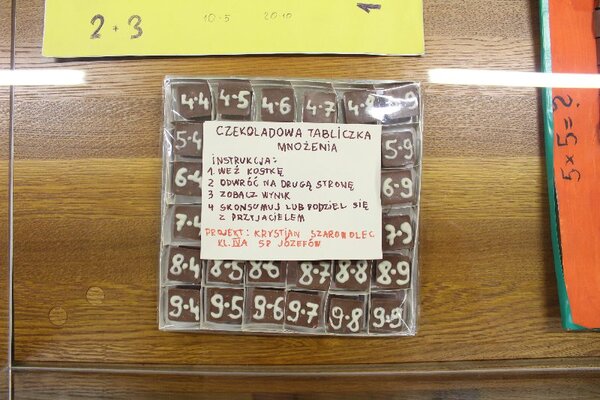 2 · 3
10·5
20·10
1
4·4 4·5 4·6 4·7 4·8
5·4
5·9
6·4
6·9
7·4
7·9
8·4 8·5 8·6 8·7 8·8 8·9
9·4 9·5 9·6 9·7 9·8 9·9
CZEKOLADOWA TABLICZKA
MNOŻENIA
INSTRUKCJA:
1 WEŹ KOSTKĘ
2 ODWRÓĆ NA DRUGĄ STRONĘ
3 ZOBACZ WYNIK
4 SKONSUMUJ LUB PODZIEL SIĘ
Z PRZYJACIELEM
PROJEKT: KRYSTIAN SZAROWOLEC
KL. IVA SP JÓZEFÓW
5x5=?